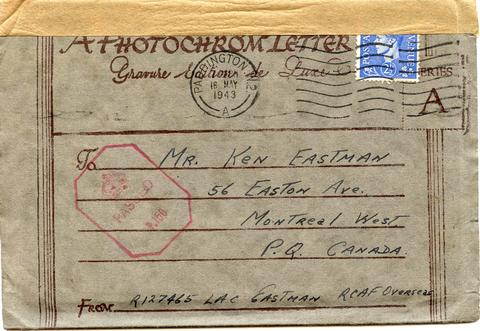 A PHOTOCHROM LETTER
Gravure Edition de Luxe
PADDINGTON W.2.
16 MAY
1943
A
POSTAGE
REVENUE
SERIES
A
To Mr. Ken Eastman
56 Easton Ave.
Montreal West
P.Q. Canada.
PASSED
From R127465 LAC Eastman RCAF Overseas